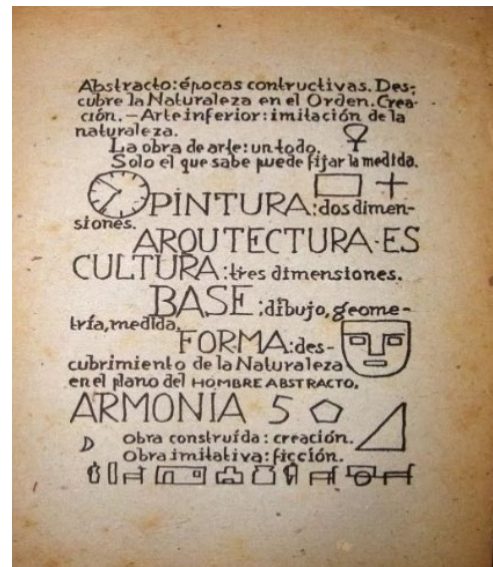 Abstracto: épocas contructivas. Des-
cubre la Naturaleza en el Orden. Crea-
ción. — Arte inferior: imitación de la
naturaleza.
La obra de arte: un todo.
Solo el que sabe puede fijar la medida.
PINTURA: dos dimen-
siones.
ARQUTECTURA·ES
CULTURA: tres dimensiones.
BASE: dibujo, geome-
tría, medida.
FORMA: des-
cubrimiento de la Naturaleza
en el plano del HOMBRE ABSTRACTO.
ARMONIA 5
D obra construída: creación.
Obra imitativa: ficción.